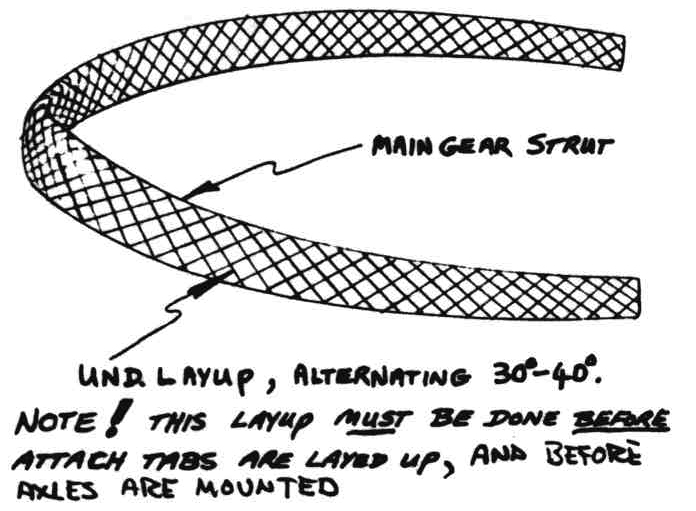 MAIN GEAR STRUT
UND. LAYUP, ALTERNATING 30°-40°.
NOTE! THIS LAYUP MUST BE DONE BEFORE
ATTACH TABS ARE LAYED UP, AND BEFORE
AXLES ARE MOUNTED